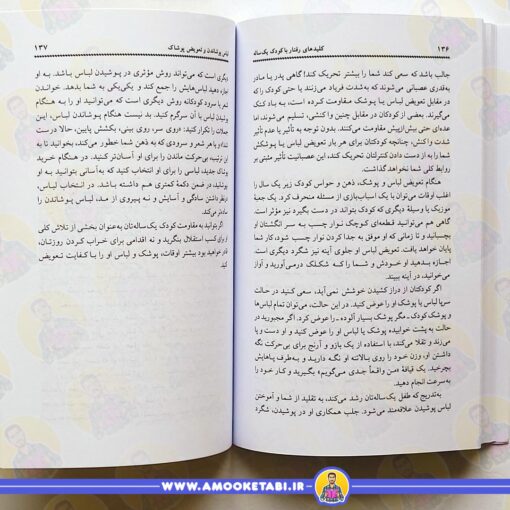 ۱۳۶ کلیدهای رفتار با کودک یک‌ساله
جالب باشد که سعی کند شما را بیشتر تحریک کند! گاهی پدر یا مادر
به‌قدری عصبانی می‌شوند که به‌شدت فریاد می‌زنند یا حتی کودک را که
در مقابل تعویض لباس یا پوشک مقاومت کرده است، به باد کتک
می‌گیرند. بعضی از کودکان در مقابل چنین واکنشی، تسلیم می‌شوند، اما
عده‌ای حتی بیش از پیش مقاومت می‌کنند. بدون توجه به تأثیر یا عدم تأثیر
شدت واکنش، چنانچه کودکتان برای هر بار تعویض لباس یا پوشکش
شما را به از دست دادن کنترلتان تحریک کند، این عصبانیت تأثیر مثبتی بر
روابط کلی شما نخواهد گذاشت.
هنگام تعویض لباس و پوشک، ذهن و حواس کودک زیر یک سال را
اغلب اوقات می‌توان با یک اسباب‌بازی از مسئله منحرف کرد. یک جعبهٔ
موزیک یا وسیلهٔ دیگری که کودک بتواند در دست بگیرد نیز مؤثر است.
گاهی هم می‌توانید قطعه‌ای کوچک نوار چسب به سر انگشتان او
بچسبانید و تا زمانی که او موفق به جدا کردن نوار چسب شود، کار شما
پایان خواهد یافت. تعویض لباس او جلوی آینه نیز شگرد دیگری است.
اجازه بدهید او خودش و شما را که شکلک درمی‌آورید و آواز
می‌خوانید، در آینه ببیند.
اگر کودکتان از دراز کشیدن خوشش نمی‌آید، سعی کنید در حالت
سرپا لباس یا پوشک او را عوض کنید. در این حالت، می‌توان تمام لباس‌ها
و پوشک کودک ـ مگر پوشک بسیار آلوده ـ را عوض کرد. اگر مجبورید در
حالت به پشت خوابیده پوشک یا لباس او را عوض کنید و او دست و پا
می‌زند و تقلا می‌کند، با استفاده از یک بازو و آرنج برای بی‌حرکت نگه
داشتن او، وزن خود را روی بالاتنه او نگه دارید و به‌طرف پاهایش
بچرخید. یک قیافهٔ «من واقعاً جدی می‌گویم» بگیرید و کار خود را
به‌سرعت انجام دهید.
به‌تدریج که طفل یک‌ساله‌تان رشد می‌کند، به تقلید از شما و آموختن
لباس پوشیدن علاقه‌مند می‌شود. جلب همکاری او در پوشیدن، شگرد
لباس پوشاندن و تعویض پوشاک ۱۳۷
دیگری است که می‌تواند روش مؤثری در پوشیدن لباس باشد. به او
اجازه دهید لباس‌هایش را جمع کند و یکی‌یکی به شما بدهد. خواندن
شعر یا سرود کودکانه روش دیگری است که می‌توانید او را به هنگام
پوشیدن لباس با آن سرگرم کنید. بد نیست هنگام پوشاندن لباس، این
جملات را تکرار کنید: «روی سر، روی بینی، بکشش پایین، حالا درست
شد!» یا هر شعر و سرودی که به ذهن شما خطور می‌کند، بخوانید تا به
این ترتیب، بی‌حرکت ماندن را برای او آسان‌تر کنید. در هنگام خرید
پوشاک جدید، لباسی را انتخاب کنید که به‌آسانی بتوانید به او
بپوشانید، در ضمن دکمهٔ کمتری هم داشته باشد. در انتخاب لباس،
درنظر داشتن سادگی و آسایش و نه پیروی از مد، لباس پوشاندن را
ساده‌تر می‌کند.
اگر بتوانید به مقاومت کودک یک‌ساله‌تان به‌عنوان بخشی از تلاش کلی
او برای کسب استقلال بنگرید و نه اقدامی برای خراب کردن روزتان،
قادر خواهید بود بیشتر اوقات، پوشک و لباس او را با کفایت تعویض
کنید.
WWW.AMOOKETABI.IR